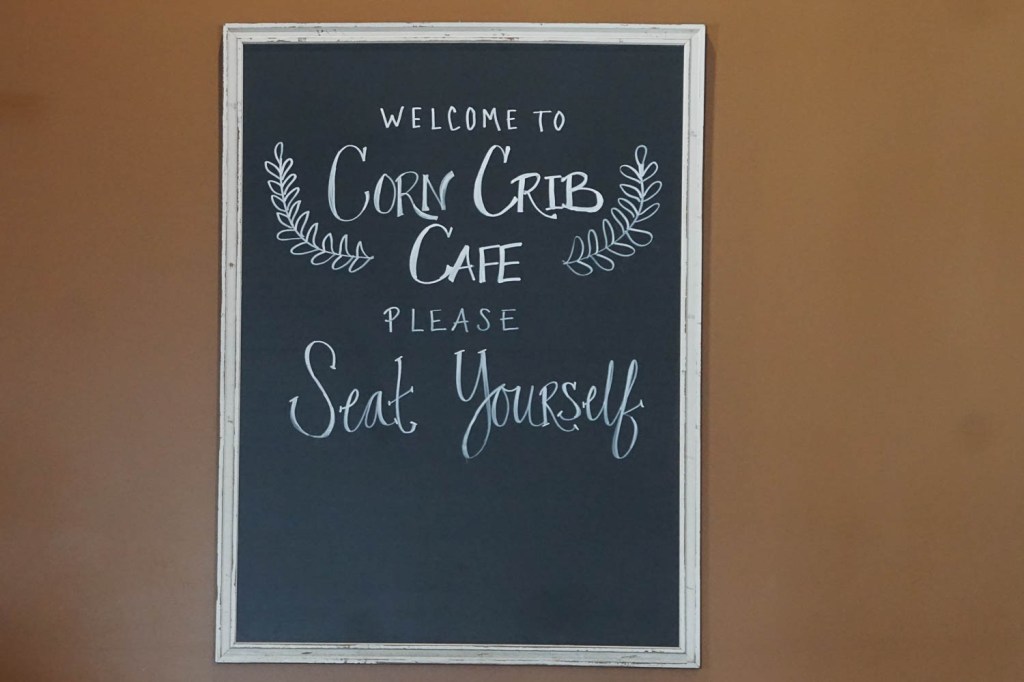 WELCOME TO
CORN CRIB
CAFE
PLEASE
Seat Yourself